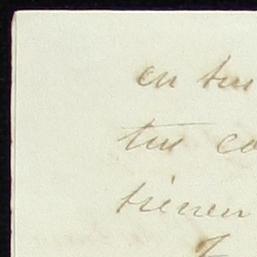 en tus
tus co
tienen